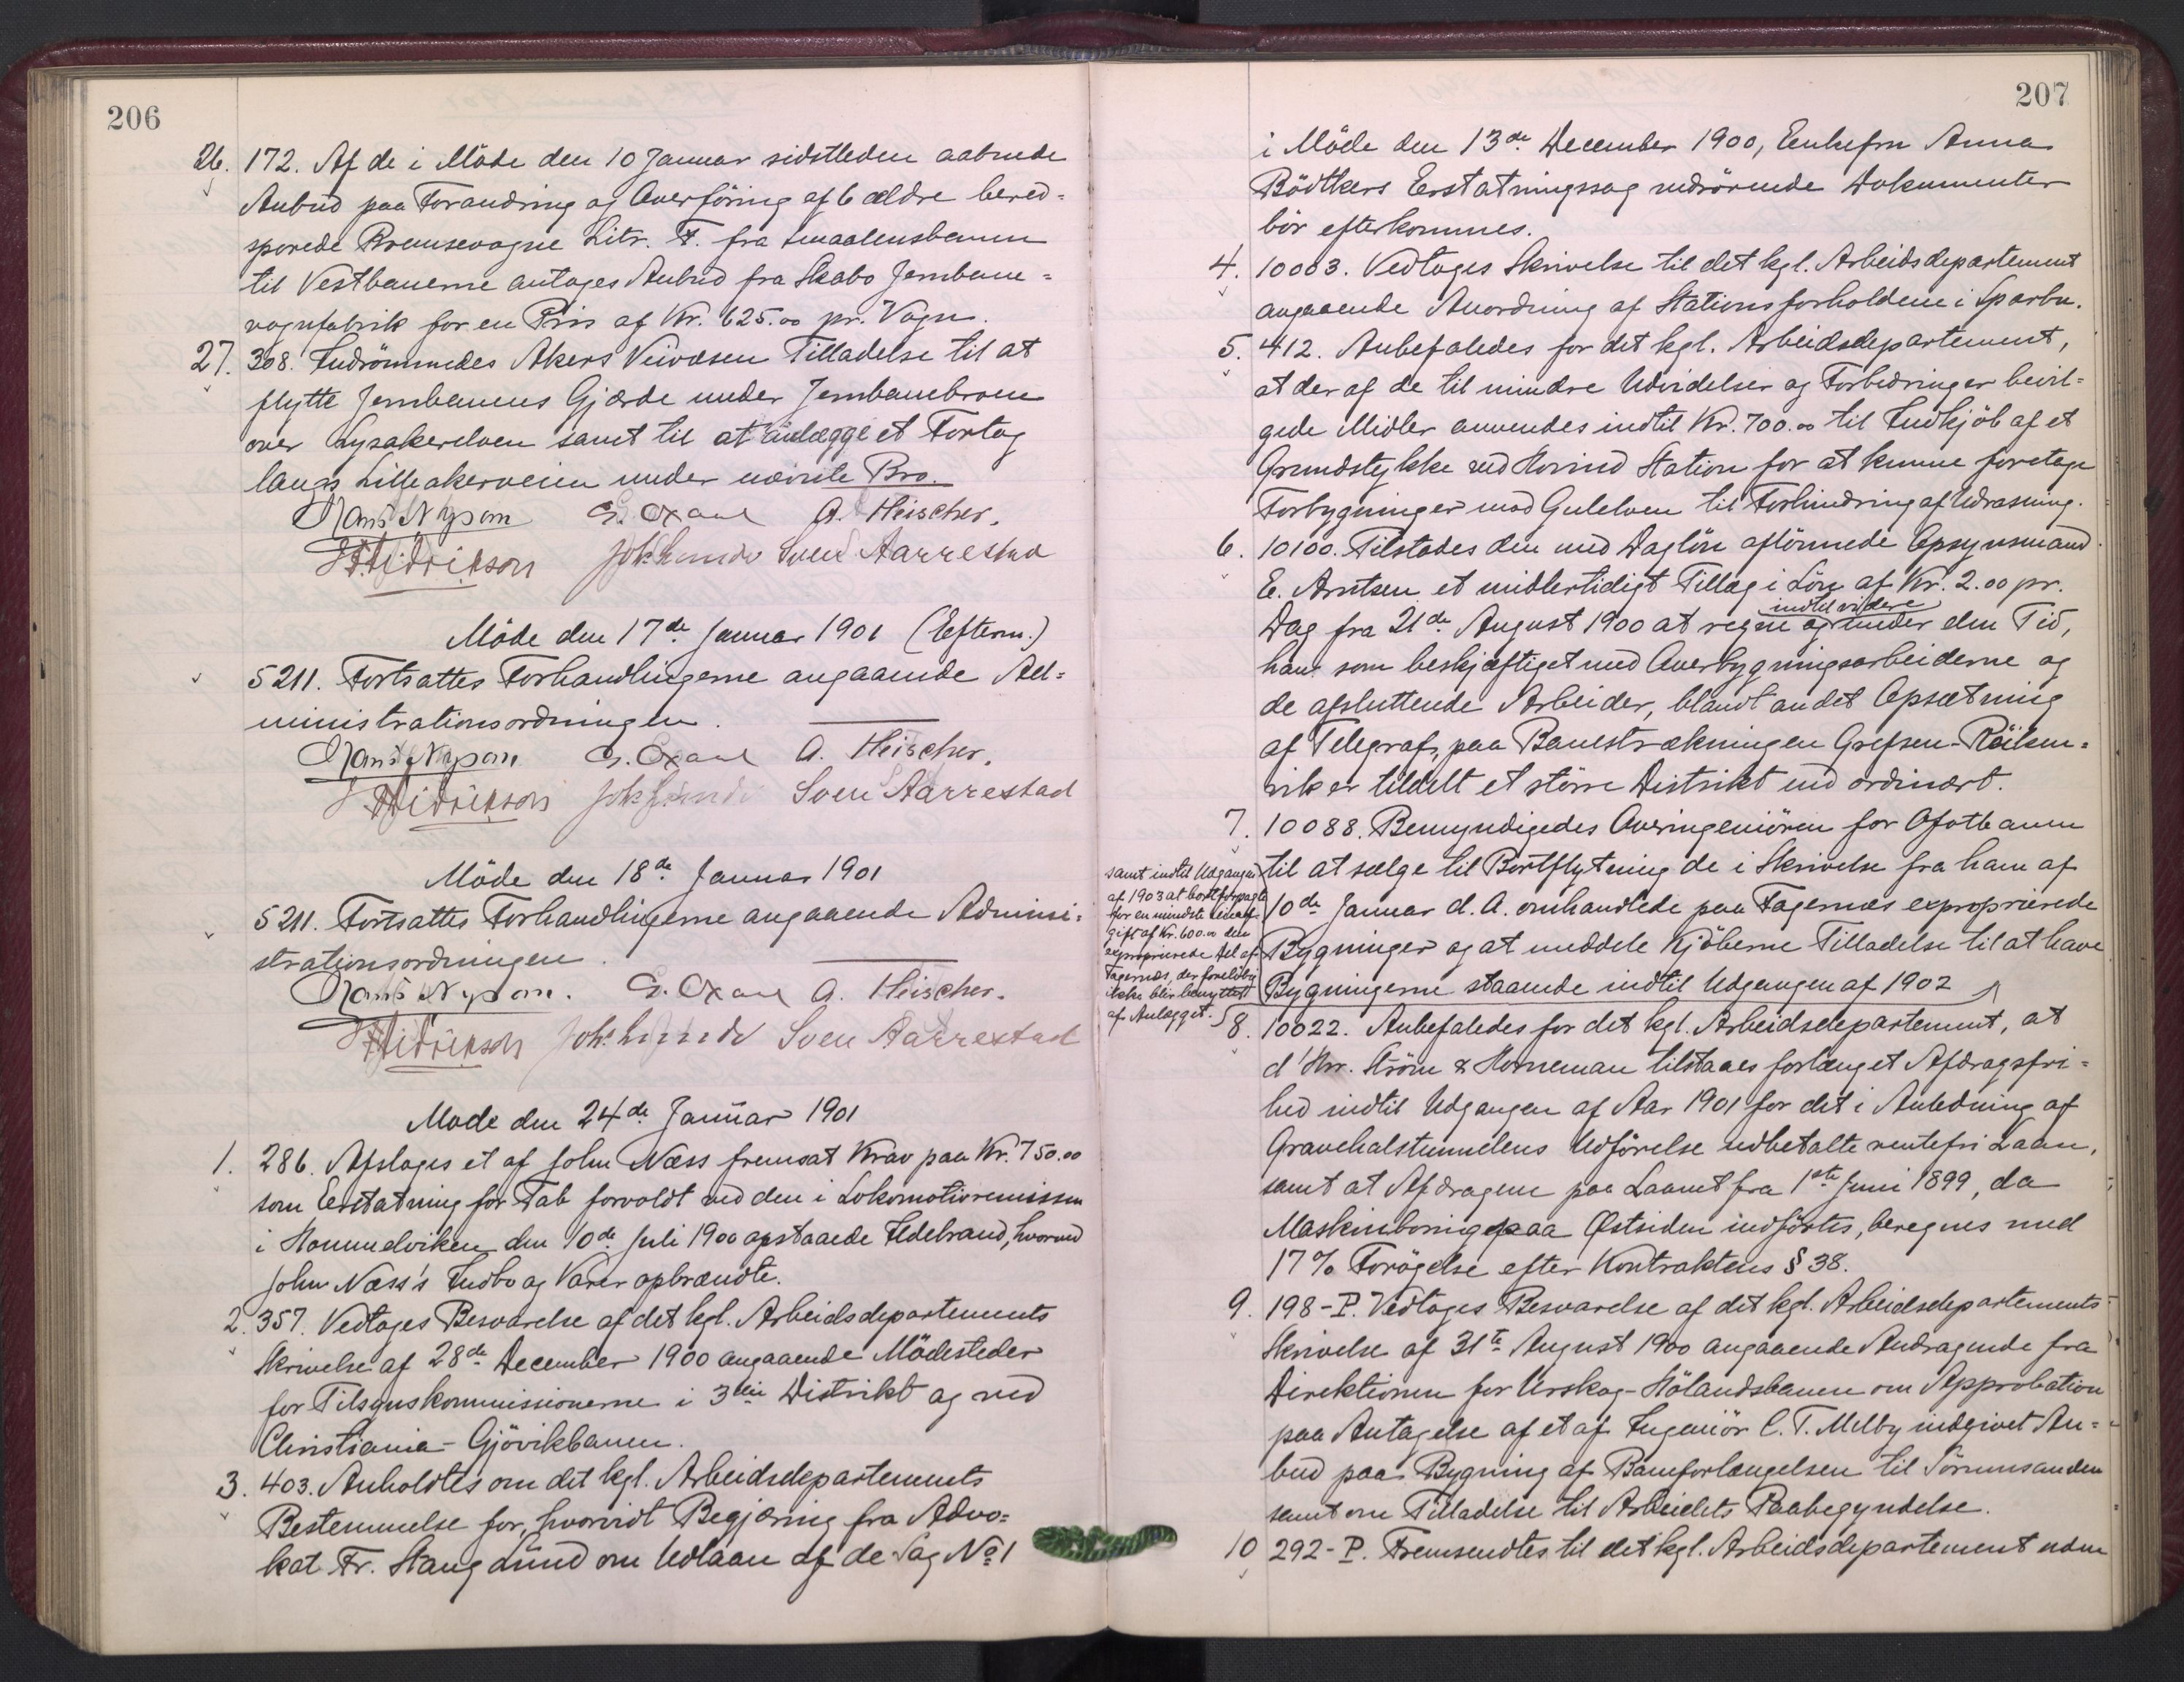 206
26. 172. Af de i Möde den 10 Januar sidstleden aabnede
Anbud paa Forandring og Overföring af 6 ældre bered=
sporede Bremsevogne Litr. F. fra Smaalensbanen
til Vestbanerne antoges Anbud fra Skabo Jernbane=
vognfabrik for en Pris af Kr. 625.00 pr. Vogn.
27. 308. Indrömmedes Akers Veivæsen Tilladelse til at
flytte Jernbanens Gjærde under Jernbanebroen
over Lysakerelven samt til at anlægge et Fortog
langs Lilleakerveien under nævnte Bro.
Hans Nysom G. Oxaal A. Fleischer.
Hidriksen Joh. Sven Aarrestad
Möde den 17de Januar 1901 (Efterm.)
5211. Fortsattes Forhandlingerne angaaende Ad=
ministrationsordningen.
Hans Nysom G. Oxaal A. Fleischer.
Hidriksen Joh. Sven Aarrestad
Möde den 18de Januar 1901
5211. Fortsattes Forhandlingerne angaaende Admini=
strationsordningen.
Hans Nysom. G. Oxaal A. Fleischer.
Hidriksen Joh. Sven Aarrestad
Möde den 24de Januar 1901
1. 286. Afsloges et af John Næss fremsat Krav paa Kr. 750.00
som Erstatning for Tab forvoldt ved den i Lokomotivremissen
i Hommelviken den 10de Juli 1900 opstaaede Ildebrand, hvorved
John Næss's Indbo og Varer opbrændte.
2. 357. Vedtoges Besvarelse af det kgl. Arbeidsdepartements
Skrivelse af 28de December 1900 angaaende Mödesteder
for Tilsynskommissionerne i 3die Distrikt og ved
Christiania-Gjövikbanen.
3. 403. Anholdtes om det kgl. Arbeidsdepartements
Bestemmelse for, hvorvidt Begjæring fra Advo=
kat Fr. Stang Lund om Udlaan af de Sag No 1
207
i Möde den 13de December 1900, Enkefru Anna
Bödtkers Erstatningssag vedrörende Dokumenter
bör efterkommes.
4. 10003. Vedtoges Skrivelse til det kgl. Arbeidsdepartement
angaaende Anordning af Stationsforholdene i Sparbu.
5. 412. Anbefaledes for det kgl. Arbeidsdepartement,
at der af de til mindre Udvidelser og Forbedringer bevil=
gede Midler anvendes indtil Kr. 700.00 til Indkjöb af et
Grundstykke ved Hovind Station for at kunne foretage
Forbygninger mod Gulelven til Forhindring af Udrasning.
6. 10100. Tilstodes den med Daglön aflönnede Opsynsmand
E. Arntsen et midlertidigt Tillæg i Lön af Kr. 2.00 pr.
indtil videre
Dag fra 21de August 1900 at regne og under den Tid,
han som beskjæftiget med Overbygningsarbeiderne og
de afsluttende Arbeider, blandt andet Opsætning
af Telegraf, paa Banestrækningen Grefsen-Röiken=
vik er tildelt et större Distrikt end ordinært.
7. 10088. Bemyndigedes Overingeniören for Ofotbanen
til at sælge til Bortflytning de i Skrivelse fra ham af
10de Januar d. A. omhandlede paa Fagernæs exproprierede
Bygninger og at meddele Kjöberne Tilladelse til at have
Bygningerne staaende indtil Udgangen af 1902
samt indtil Udgangen
af 1903 at bortforpagte
for en mindste Leieaf=
gift af Kr. 600.00 den
exproprierede Del af
Fagernæs, der forelöbig
ikke blir benyttet
af Anlægget.
8. 10022. Anbefaledes for det kgl. Arbeidsdepartement, at
d'Hrr. Ström & Horneman tilstaaes forlænget Afdragsfri=
hed indtil Udgangen af Aar 1901 for det i Anledning af
Gravehalstunnelens Udförelse udbetalte rentefri Laan,
samt at Afdragene paa Laanet fra 1ste Juni 1899, da
Maskinboring paa Östsiden indförtes, beregnes med
17% Forögelse efter Kontraktens § 38.
9. 198-P. Vedtoges Besvarelse af det kgl. Arbeidsdepartements
Skrivelse af 31te August 1900 angaaende Andragende fra
Direktionen for Urskog-Hölandsbanen om Approbation
paa Antagelse af et af Ingeniör C. T. Melby indgivet An=
bud paa Bygning af Baneforlængelsen til Sörumsanden
samt om Tilladelse til Arbeidets Paabegyndelse.
10 292-P. Fremsendtes til det kgl. Arbeidsdepartement uden